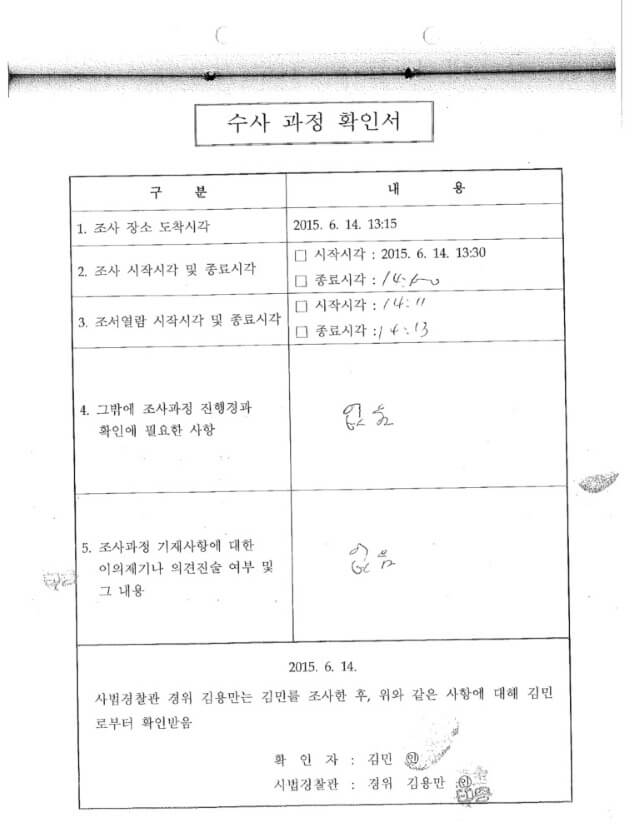 수사 과정 확인서
구 분
내 용
1. 조사 장소 도착시각
2015. 6. 14. 13:15
2. 조사 시작시각 및 종료시각
□ 시작시각 : 2015. 6. 14. 13:30
□ 종료시각 : 14:
3. 조서열람 시작시각 및 종료시각
□ 시작시각 : 14:11
□ 종료시각 : 14:13
4. 그밖에 조사과정 진행경과
확인에 필요한 사항
없음
5. 조사과정 기재사항에 대한
이의제기나 의견진술 여부 및
그 내용
없음
2015. 6. 14.
사법경찰관 경위 김용만는 김민를 조사한 후, 위와 같은 사항에 대해 김민
로부터 확인받음
확 인 자 : 김민 ㊞
시법경찰관 : 경위 김용만 ㊞